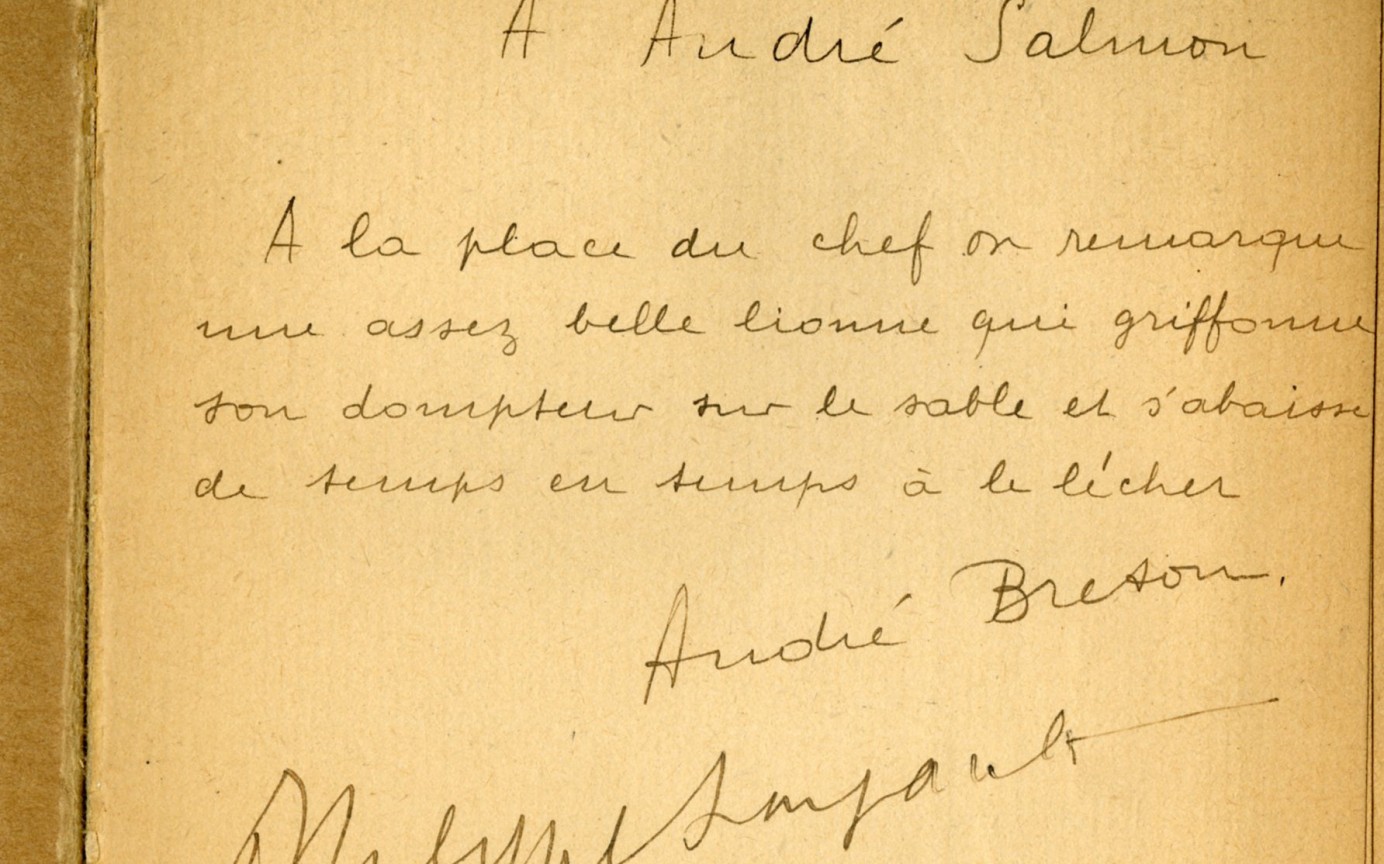 A André Salmon
A la place du chef on remarque
une assez belle lionne qui griffonne
son dompteur sur le sable et s'abaisse
de temps en temps à le lécher
André Breton.
Philippe Soupault